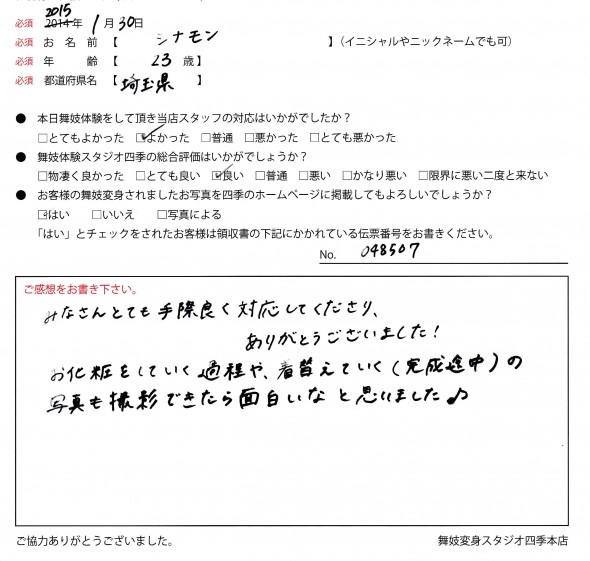 2015
必須 2014年 1月30日
必須 お 名 前 【 シナモン 】(イニシャルやニックネームでも可)
必須 年 齢 【 23 歳】
必須 都道府県名 【 埼玉県 】
● 本日舞妓体験をして頂き当店スタッフの対応はいかがでしたか?
□とてもよかった ☑よかった □普通 □悪かった □とても悪かった
● 舞妓体験スタジオ四季の総合評価はいかがでしょうか?
□物凄く良かった □とても良い ☑良い □普通 □悪い □かなり悪い □限界に悪い二度と来ない
● お客様の舞妓変身されましたお写真を四季のホームページに掲載してもよろしいでしょうか?
☑はい □いいえ □写真による
「はい」とチェックをされたお客様は領収書の下記にかかれている伝票番号をお書きください。
No. 048507
ご感想をお書き下さい。
みなさんとても手際良く対応してくださり、
ありがとうございました!
お化粧をしていく過程や、着替えていく(完成途中)の
写真も撮影できたら面白いなと思いました♪
ご協力ありがとうございました。 舞妓変身スタジオ四季本店